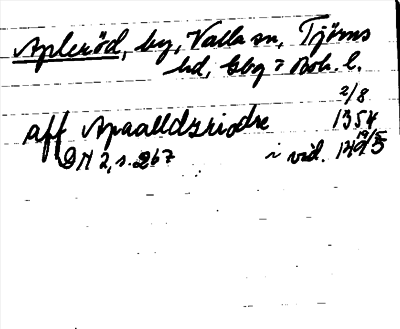 Apleröd, by, Valla sn, Tjörns
hd, Gbg o Boh. l.
2/8
aff Apaalldzriodre 1354
DN 2, s. 267 i vid. 19/5